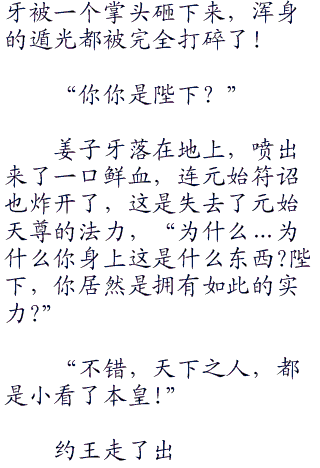 牙被一个掌头砸下来，浑身
的遁光都被完全打碎了！
“你你是陛下？”
姜子牙落在地上，喷出
来了一口鲜血，连元始符诏
也炸开了，这是失去了元始
天尊的法力，“为什么...为
什么你身上这是什么东西?陛
下，你居然是拥有如此的实
力?”
“不错，天下之人，都
是小看了本皇!”
约王走了出